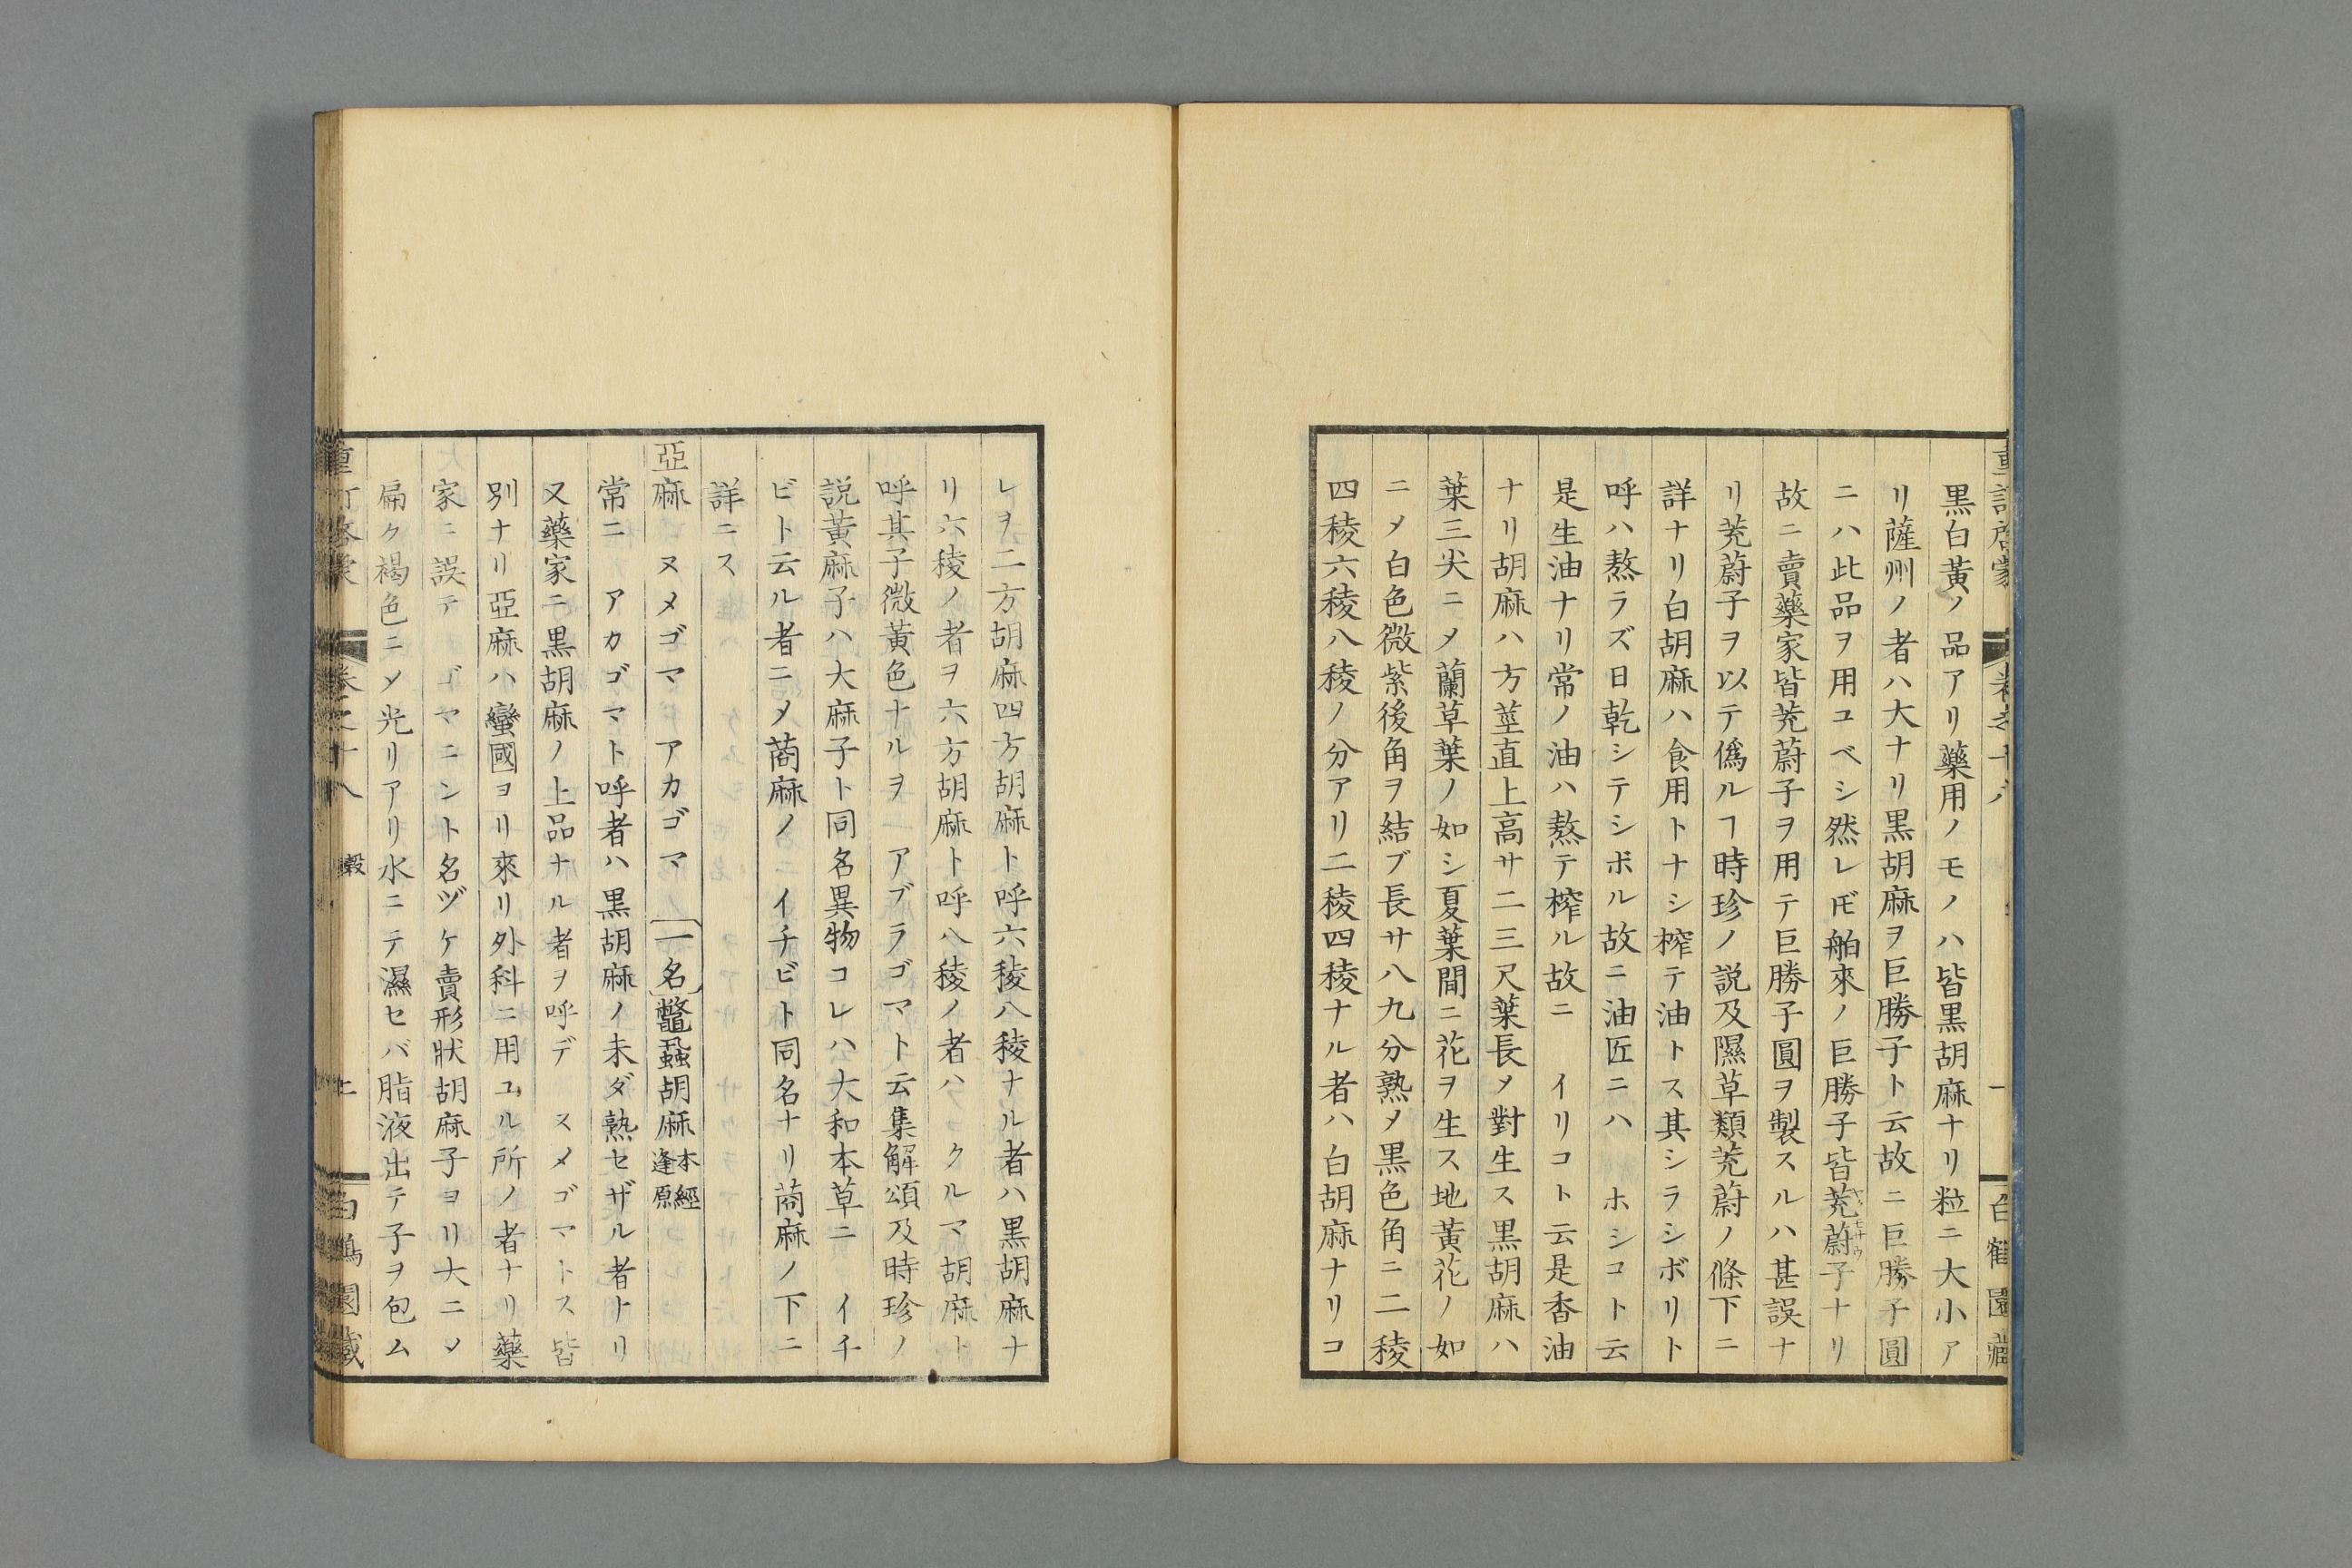 黒白黃ノ品アリ藥用ノモノハ皆黒胡麻ナリ粒ニ大小ア
リ薩州ノ者ハ大ナリ黒胡麻ヲ巨勝子ト云故ニ巨勝子圓
ニハ此品ヲ用ユベシ然レ𪜈舶來ノ巨勝子皆茺蔚子ナリ
故ニ賣藥家皆茺蔚子ヲ用テ巨勝子圓ヲ製スルハ甚誤ナ
リ茺蔚子ヲ以テ僞ルヿ時珍ノ説及隰草類茺蔚ノ條下ニ
詳ナリ白胡麻ハ食用トナシ榨テ油トス其シラシボリト
呼ハ熬ラズ日乾シテシボル故ニ油匠ニハ ホシコト云
是生油ナリ常ノ油ハ熬テ榨ル故ニ イリコト云是香油
ナリ胡麻ハ方莖直上高サ二三尺葉長メ對生ス黒胡麻ハ
葉三尖ニメ蘭草葉ノ如シ夏葉間ニ花ヲ生ス地黃花ノ如
ニメ白色微紫後角ヲ結ブ長サ八九分熟メ黒色角ニ二稜
四稜六稜八稜ノ分アリ二稜四稜ナル者ハ白胡麻ナリコ
レヲ二方胡麻四方胡麻ト呼六稜八稜ナル者ハ黒胡麻ナ
リ六稜ノ者ヲ六方胡麻ト呼八稜ノ者ハクルマ胡麻ト
呼其子微黃色ナルヲ アブラゴマト云集解頌及時珍ノ
説黃麻子ハ大麻子ト同名異物コレハ大和本草ニ イチ
ビト云ル者ニメ䔛麻ノ イチビト同名ナリ䔛麻ノ下ニ
詳ニス
亞麻 ヌメゴマ アカゴマ 〔一名〕鼈蝨胡麻 本經逢原
常ニ アカゴマト呼者ハ黒胡麻ノ未ダ熟セザル者ナリ
又藥家ニ黒胡麻ノ上品ナル者ヲ呼デ スメゴマトス皆
別ナリ亞麻ハ蠻國ヨリ來リ外科ニ用ユル所ノ者ナリ藥
家ニ誤テ ゴマニント名ヅケ賣形狀胡麻子ヨリ大ニメ
扁ク褐色ニメ光リアリ水ニテ濕セバ脂液出テ子ヲ包ム
卷之十八 穀